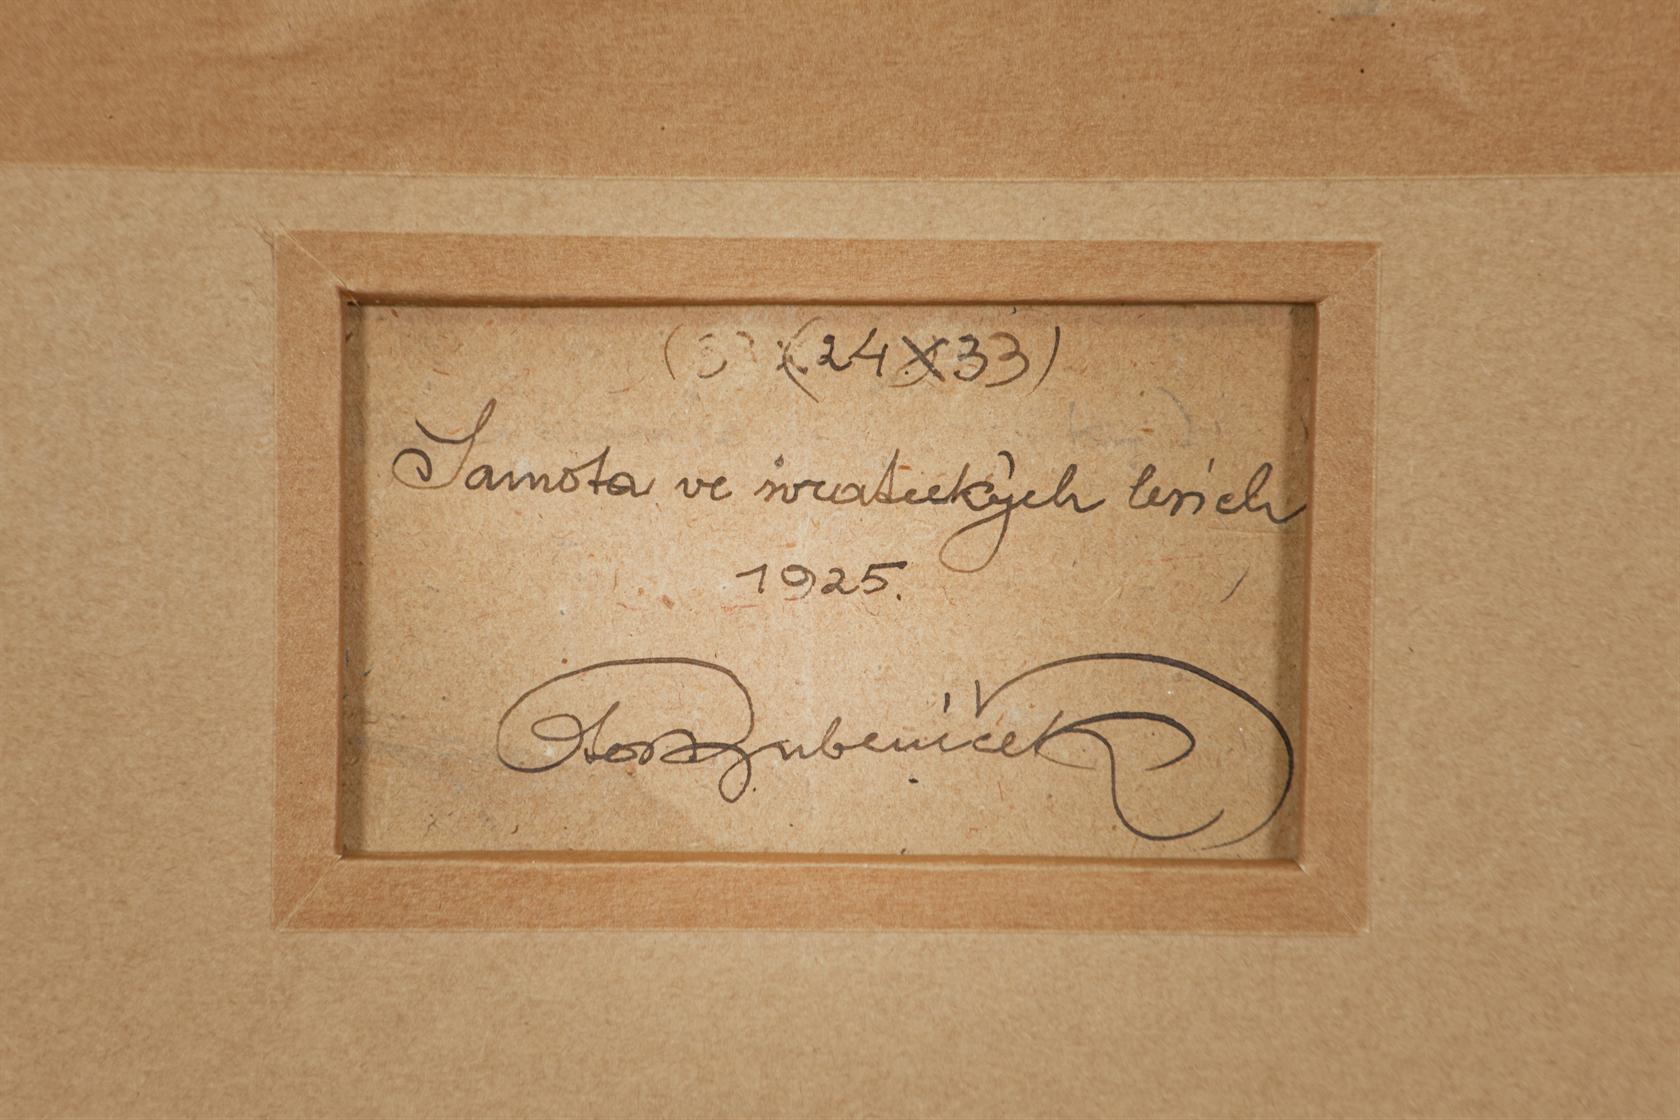 (24X33)
Samota ve svrateckých lesích
1925.
Ota Bubeníček